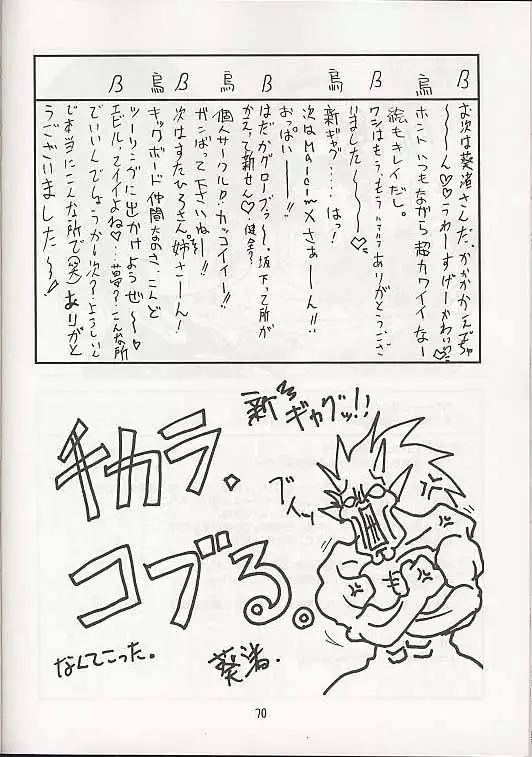 β お次は葵渚さんだ、かかかかんじゃ
～～ん♡♡うわーすげーかわいい♡
烏 ホントいつもながら超カワイイなー
絵もキレイだし。
β ワシはもう、もう、ありがとうござ
いました～～♡
烏 新ギャグ……はっ!
次はMalcimXさぁーん!!
おっぱい――!!
β はだかグローブっ～～。坂下って所が
かえって新せん♡健全?
烏 個人サークルD・カッコイイー!!
ガンばって下さいねぇ～!!
β 次はすたひろさん。姉さーん!
烏 キックボード仲間なのさ、こんど
ツーリングに出かけようぜ～
β エビル、ってイイよね♡…夢?…こんな所
でいいんでしょうか次?…
で本当にこんな所で(笑)ありがと
うございました～～!
新ギャグッ!!
チカラ。
コブる。
ブイッ
なんてこった。
葵渚.
70